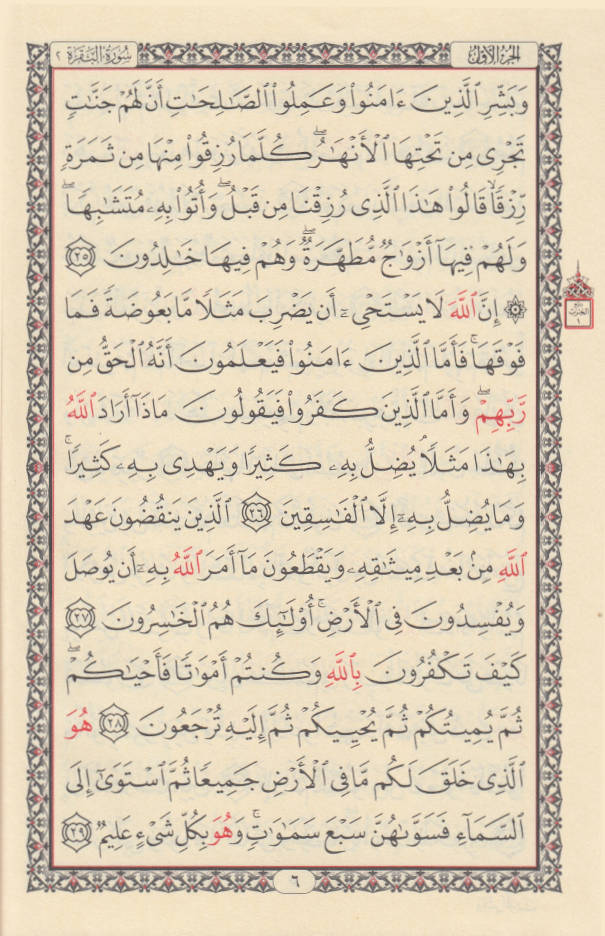 سُورَةُ البَقَرَة ٢
الجُزءُ الأَوَّلُ
وَبَشِّرِ ٱلَّذِينَ ءَامَنُوا۟ وَعَمِلُوا۟ ٱلصَّٰلِحَٰتِ أَنَّ لَهُمْ جَنَّٰتٍ
تَجْرِى مِن تَحْتِهَا ٱلْأَنْهَٰرُ ۖ كُلَّمَا رُزِقُوا۟ مِنْهَا مِن ثَمَرَةٍ
رِّزْقًا ۙ قَالُوا۟ هَٰذَا ٱلَّذِى رُزِقْنَا مِن قَبْلُ ۖ وَأُتُوا۟ بِهِۦ مُتَشَٰبِهًا ۖ
وَلَهُمْ فِيهَآ أَزْوَٰجٌ مُّطَهَّرَةٌ ۖ وَهُمْ فِيهَا خَٰلِدُونَ ٢٥
۞ إِنَّ ٱللَّهَ لَا يَسْتَحْىِۦٓ أَن يَضْرِبَ مَثَلًا مَّا بَعُوضَةً فَمَا
فَوْقَهَا ۚ فَأَمَّا ٱلَّذِينَ ءَامَنُوا۟ فَيَعْلَمُونَ أَنَّهُ ٱلْحَقُّ مِن
رَّبِّهِمْ ۖ وَأَمَّا ٱلَّذِينَ كَفَرُوا۟ فَيَقُولُونَ مَاذَآ أَرَادَ ٱللَّهُ
بِهَٰذَا مَثَلًا ۘ يُضِلُّ بِهِۦ كَثِيرًا وَيَهْدِى بِهِۦ كَثِيرًا ۚ
وَمَا يُضِلُّ بِهِۦٓ إِلَّا ٱلْفَٰسِقِينَ ٢٦ ٱلَّذِينَ يَنقُضُونَ عَهْدَ
ٱللَّهِ مِنۢ بَعْدِ مِيثَٰقِهِۦ وَيَقْطَعُونَ مَآ أَمَرَ ٱللَّهُ بِهِۦٓ أَن يُوصَلَ
وَيُفْسِدُونَ فِى ٱلْأَرْضِ ۚ أُو۟لَٰٓئِكَ هُمُ ٱلْخَٰسِرُونَ ٢٧
كَيْفَ تَكْفُرُونَ بِٱللَّهِ وَكُنتُمْ أَمْوَٰتًا فَأَحْيَٰكُمْ ۖ
ثُمَّ يُمِيتُكُمْ ثُمَّ يُحْيِيكُمْ ثُمَّ إِلَيْهِ تُرْجَعُونَ ٢٨ هُوَ
ٱلَّذِى خَلَقَ لَكُم مَّا فِى ٱلْأَرْضِ جَمِيعًا ثُمَّ ٱسْتَوَىٰٓ إِلَى
ٱلسَّمَآءِ فَسَوَّىٰهُنَّ سَبْعَ سَمَٰوَٰتٍ ۚ وَهُوَ بِكُلِّ شَىْءٍ عَلِيمٌ ٢٩
٦